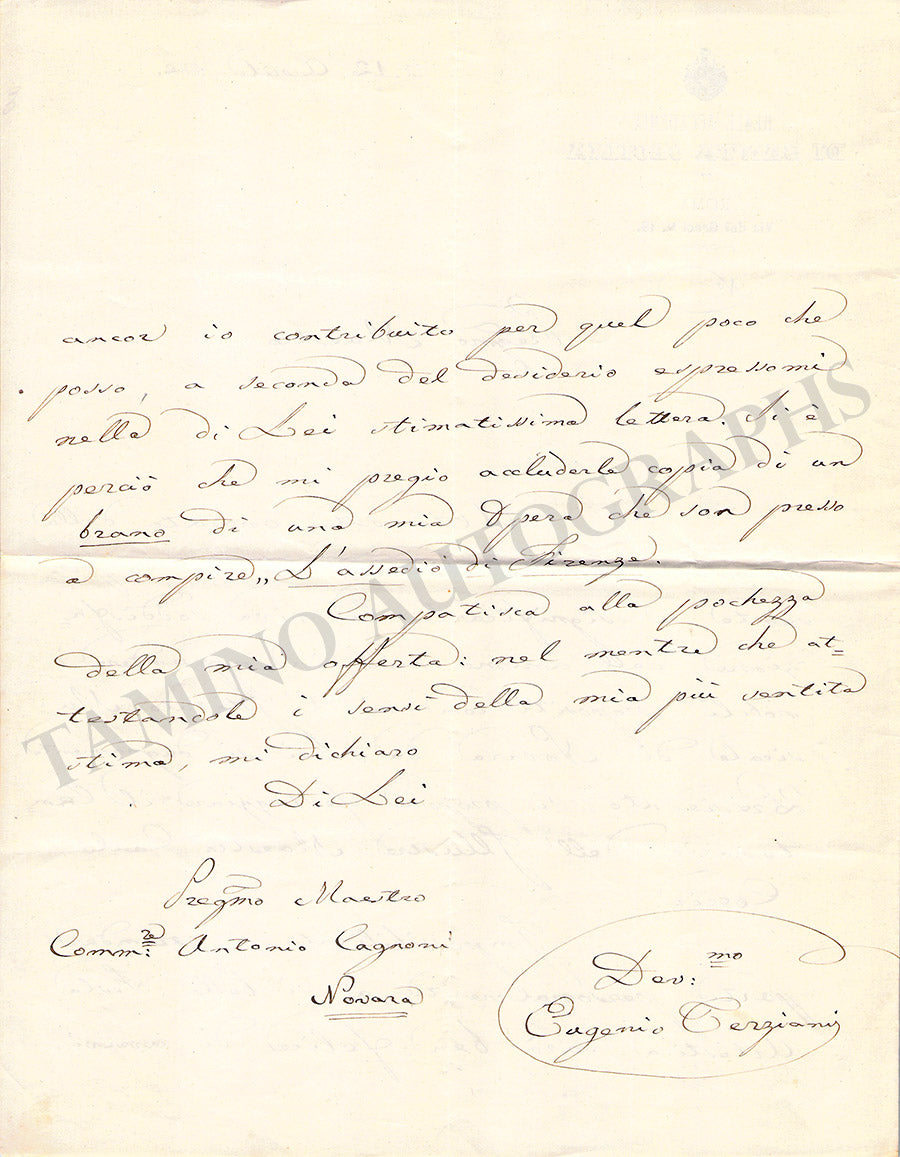 ancor io contribuito per quel poco che
posso, a seconda del desiderio espressomi
nella di Lei stimatissima lettera. Si è
perciò che mi pregio accluderle copia di un
brano di una mia Opera che son presso
a compire „ L'assedio di Firenze.
Compatisca alla pochezza
della mia offerta: nel mentre che at=
testandole i sensi della mia più sentita
stima, mi dichiaro
Di Lei
Pregmo Maestro
Comm:re Antonio Cagnoni
Novara
Dev:mo
Eugenio Terziani
TAMINO AUTOGRAPHS